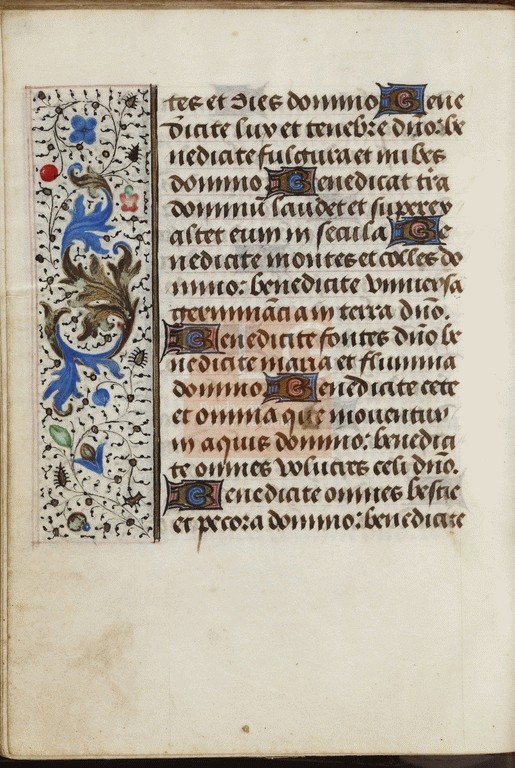 tes et dies domino Bene
dicite lux et tenebre dño: be
nedicite fulgura et nubes
domino Benedicat tr̃a
dominũ laudet et superex
altet eum in secula Be
nedicite montes et colles do
mino: benedicite vniuersa
germinãcia in terra dño.
Benedicite fontes dño be
nedicite maria et flumina
domino Benedicite cete
et omnia que mouentur
in aquis domino: benedici
te omnes volucres celi dño.
Benedicite omnes bestie
et pecora domino: benedicite